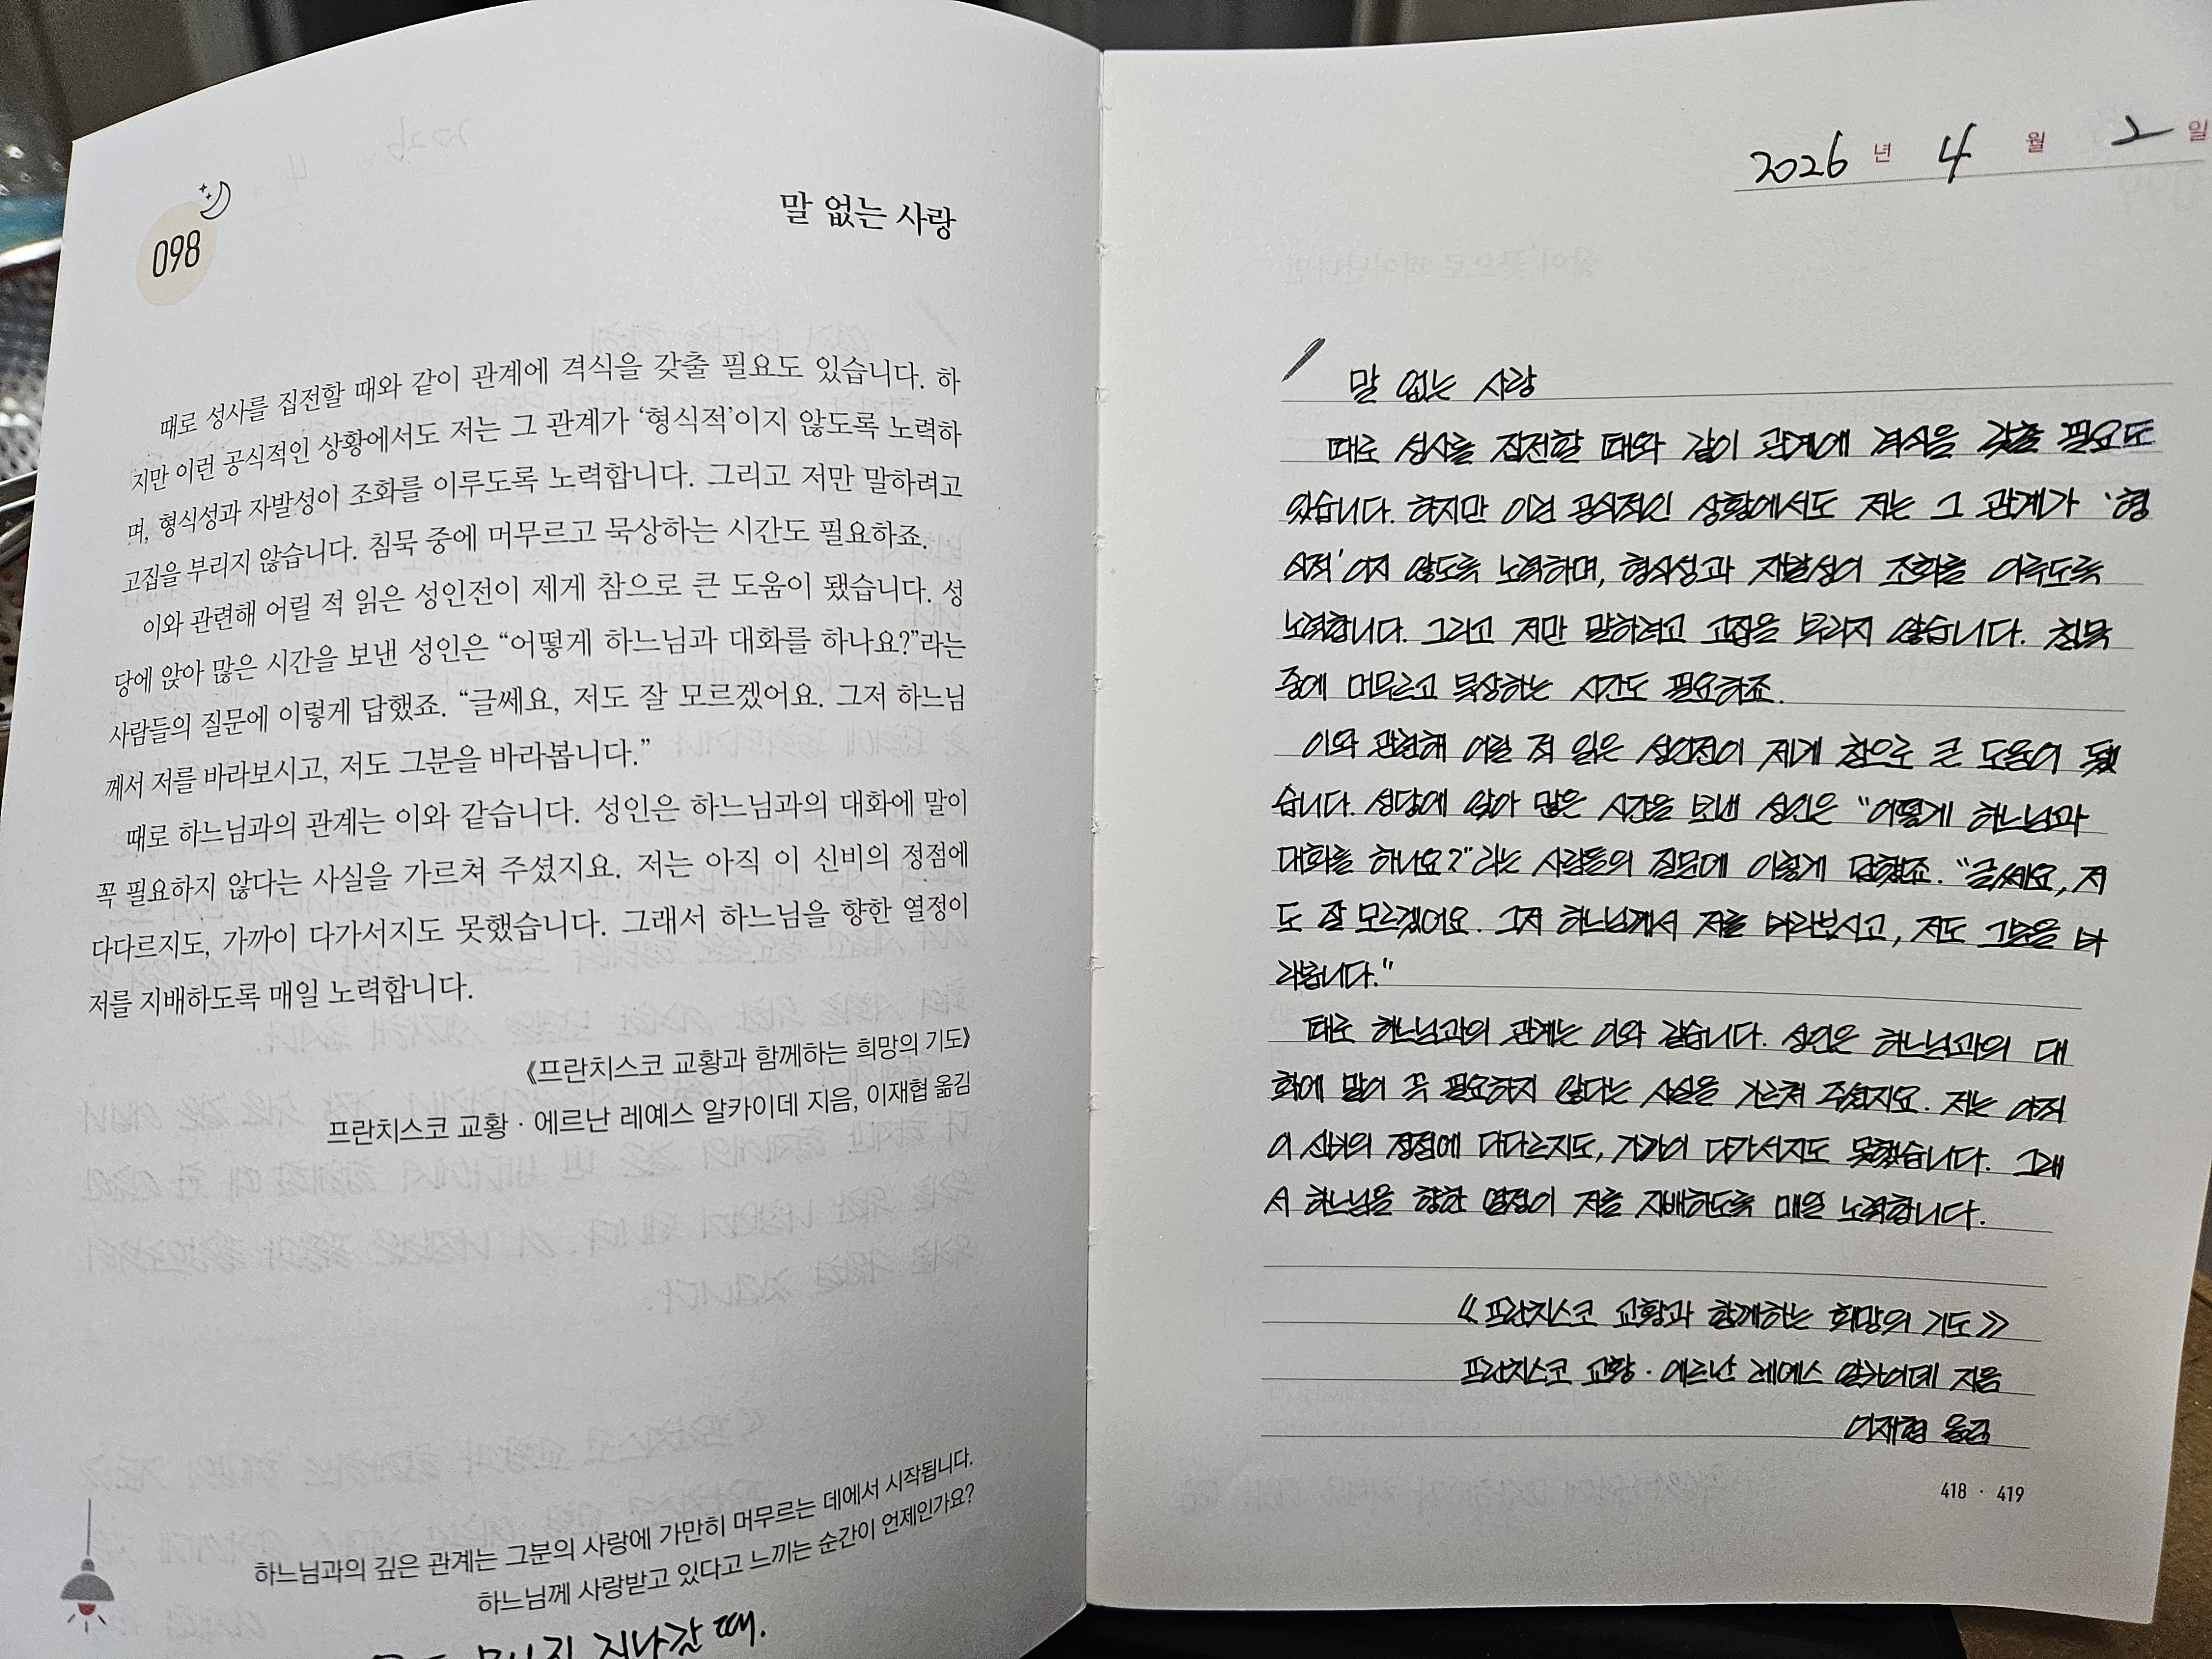 098
말 없는 사랑
때로 성사를 집전할 때와 같이 관계에 격식을 갖출 필요도 있습니다. 하
지만 이런 공식적인 상황에서도 저는 그 관계가 ‘형식적’이지 않도록 노력하
며, 형식성과 자발성이 조화를 이루도록 노력합니다. 그리고 저만 말하려고
고집을 부리지 않습니다. 침묵 중에 머무르고 묵상하는 시간도 필요하죠.
이와 관련해 어릴 적 읽은 성인전이 제게 참으로 큰 도움이 됐습니다. 성
당에 앉아 많은 시간을 보낸 성인은 “어떻게 하느님과 대화를 하나요?”라는
사람들의 질문에 이렇게 답했죠. “글쎄요, 저도 잘 모르겠어요. 그저 하느님
께서 저를 바라보시고, 저도 그분을 바라봅니다.”
때로 하느님과의 관계는 이와 같습니다. 성인은 하느님과의 대화에 말이
꼭 필요하지 않다는 사실을 가르쳐 주셨지요. 저는 아직 이 신비의 정점에
다다르지도, 가까이 다가서지도 못했습니다. 그래서 하느님을 향한 열정이
저를 지배하도록 매일 노력합니다.
《프란치스코 교황과 함께하는 희망의 기도》
프란치스코 교황 · 에르난 레예스 알카이데 지음, 이재협 옮김
하느님과의 깊은 관계는 그분의 사랑에 가만히 머무르는 데에서 시작됩니다.
하느님께 사랑받고 있다고 느끼는 순간이 언제인가요?
지나갈 때.
2026 년 4 월 2 일
말 없는 사랑
때로 성사를 집전할 때와 같이 관계에 격식을 갖출 필요도
있습니다. 하지만 이런 공식적인 상황에서도 저는 그 관계가 '형
식적'이지 않도록 노력하며, 형식성과 자발성이 조화를 이루도록
노력합니다. 그리고 저만 말하려고 고집을 부리지 않습니다. 침묵
중에 머무르고 묵상하는 시간도 필요하죠.
이와 관련해 어릴 적 읽은 성인전이 제게 참으로 큰 도움이 됐
습니다. 성당에 앉아 많은 시간을 보낸 성인은 "어떻게 하느님과
대화를 하나요?"라는 사람들의 질문에 이렇게 답했죠. "글쎄요, 저
도 잘 모르겠어요. 그저 하느님께서 저를 바라보시고, 저도 그분을 바
라봅니다."
때로 하느님과의 관계는 이와 같습니다. 성인은 하느님과의 대
화에 말이 꼭 필요하지 않다는 사실을 가르쳐 주셨지요. 저는 아직
이 신비의 정점에 다다르지도, 가까이 다가서지도 못했습니다. 그래
서 하느님을 향한 열정이 저를 지배하도록 매일 노력합니다.
《프란치스코 교황과 함께하는 희망의 기도》
프란치스코 교황 · 에르난 레예스 알카이데 지음
이재협 옮김
418 · 419